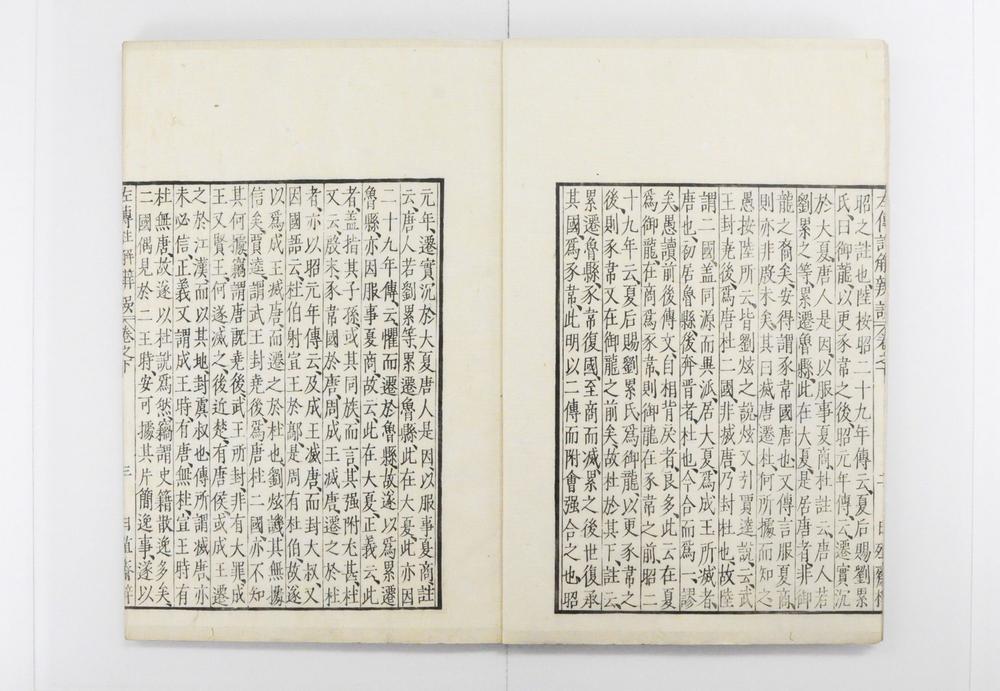 左傳註解辨誤卷之下 二
昭之註也、陸按昭二十九年傳云、夏后賜劉累
氏曰御龍、以更豕韋之後、昭元年傳云、遷實沉
於大夏、唐人是因、以服事夏商、杜註云、唐人若
劉累之等、累遷魯縣、此在大夏、是居唐者、非御
龍之裔矣、安得謂豕韋國唐也、又傳言服夏商、
則亦非殷末矣、其曰㓕唐遷杜、何所據而知之、
愚按陸所云、皆劉炫之說、炫又引賈逵說云、武
王封堯後、爲唐杜二國、非㓕唐乃封杜也、故陸
謂二國盖同源而異派、居大夏、爲成王所㓕者、
唐也、初居魯縣、後奔晋者、杜也、今合而爲一、謬
矣、愚讀前後傳文、自相背戾者、良多、此云在夏
爲御龍、在商爲豕韋、則御龍在豕韋之前、昭二
十九年云、夏后賜劉累氏爲御龍、以更豕韋之
後、則豕韋又在御龍之前矣、故杜於其下、註云、
累遷魯縣、豕韋復國、至商而㓕、累之後世、復承
其國、爲豕韋、此明以二傳而附會强合之也、昭
元年、遷實沉於大夏、唐人是因、以服事夏商、註
云、唐人若劉累等、累遷魯縣、此在大夏、此亦因
二十九年傳、云懼而遷於魯縣、故遂以爲累遷
魯縣、亦因服事夏商、故云此在大夏、正義云、此
者、盖指其子孫、或其同族、而言其强附尤甚、杜
又云、殷末豕韋國於唐、周成王㓕唐、遷之於杜
者、亦以昭元年傳云、及成王㓕唐、而封大叔、又
因國語云、杜伯射宣王於鄗、是周有杜伯、故遂
以爲成王㓕唐、而遷之於杜也、劉炫譏其無據
信矣、賈逵謂武王封堯後爲唐杜二國、亦不知
其何據、竊謂唐旣堯後、武王所封、非有大罪、成
王又賢王、何遂㓕之、後近楚、有唐侯、或成王遷
之於江漢、而以其地封虞叔也、傳所謂㓕唐、亦
未必信、正義又謂成王時有唐、無杜、宣王時有
杜無唐、故遂以杜說爲然、竊謂史籍散逸多矣、
二國偶見於二王時、安可據其片簡逸事、遂以
左傳註解辨誤卷之下 三